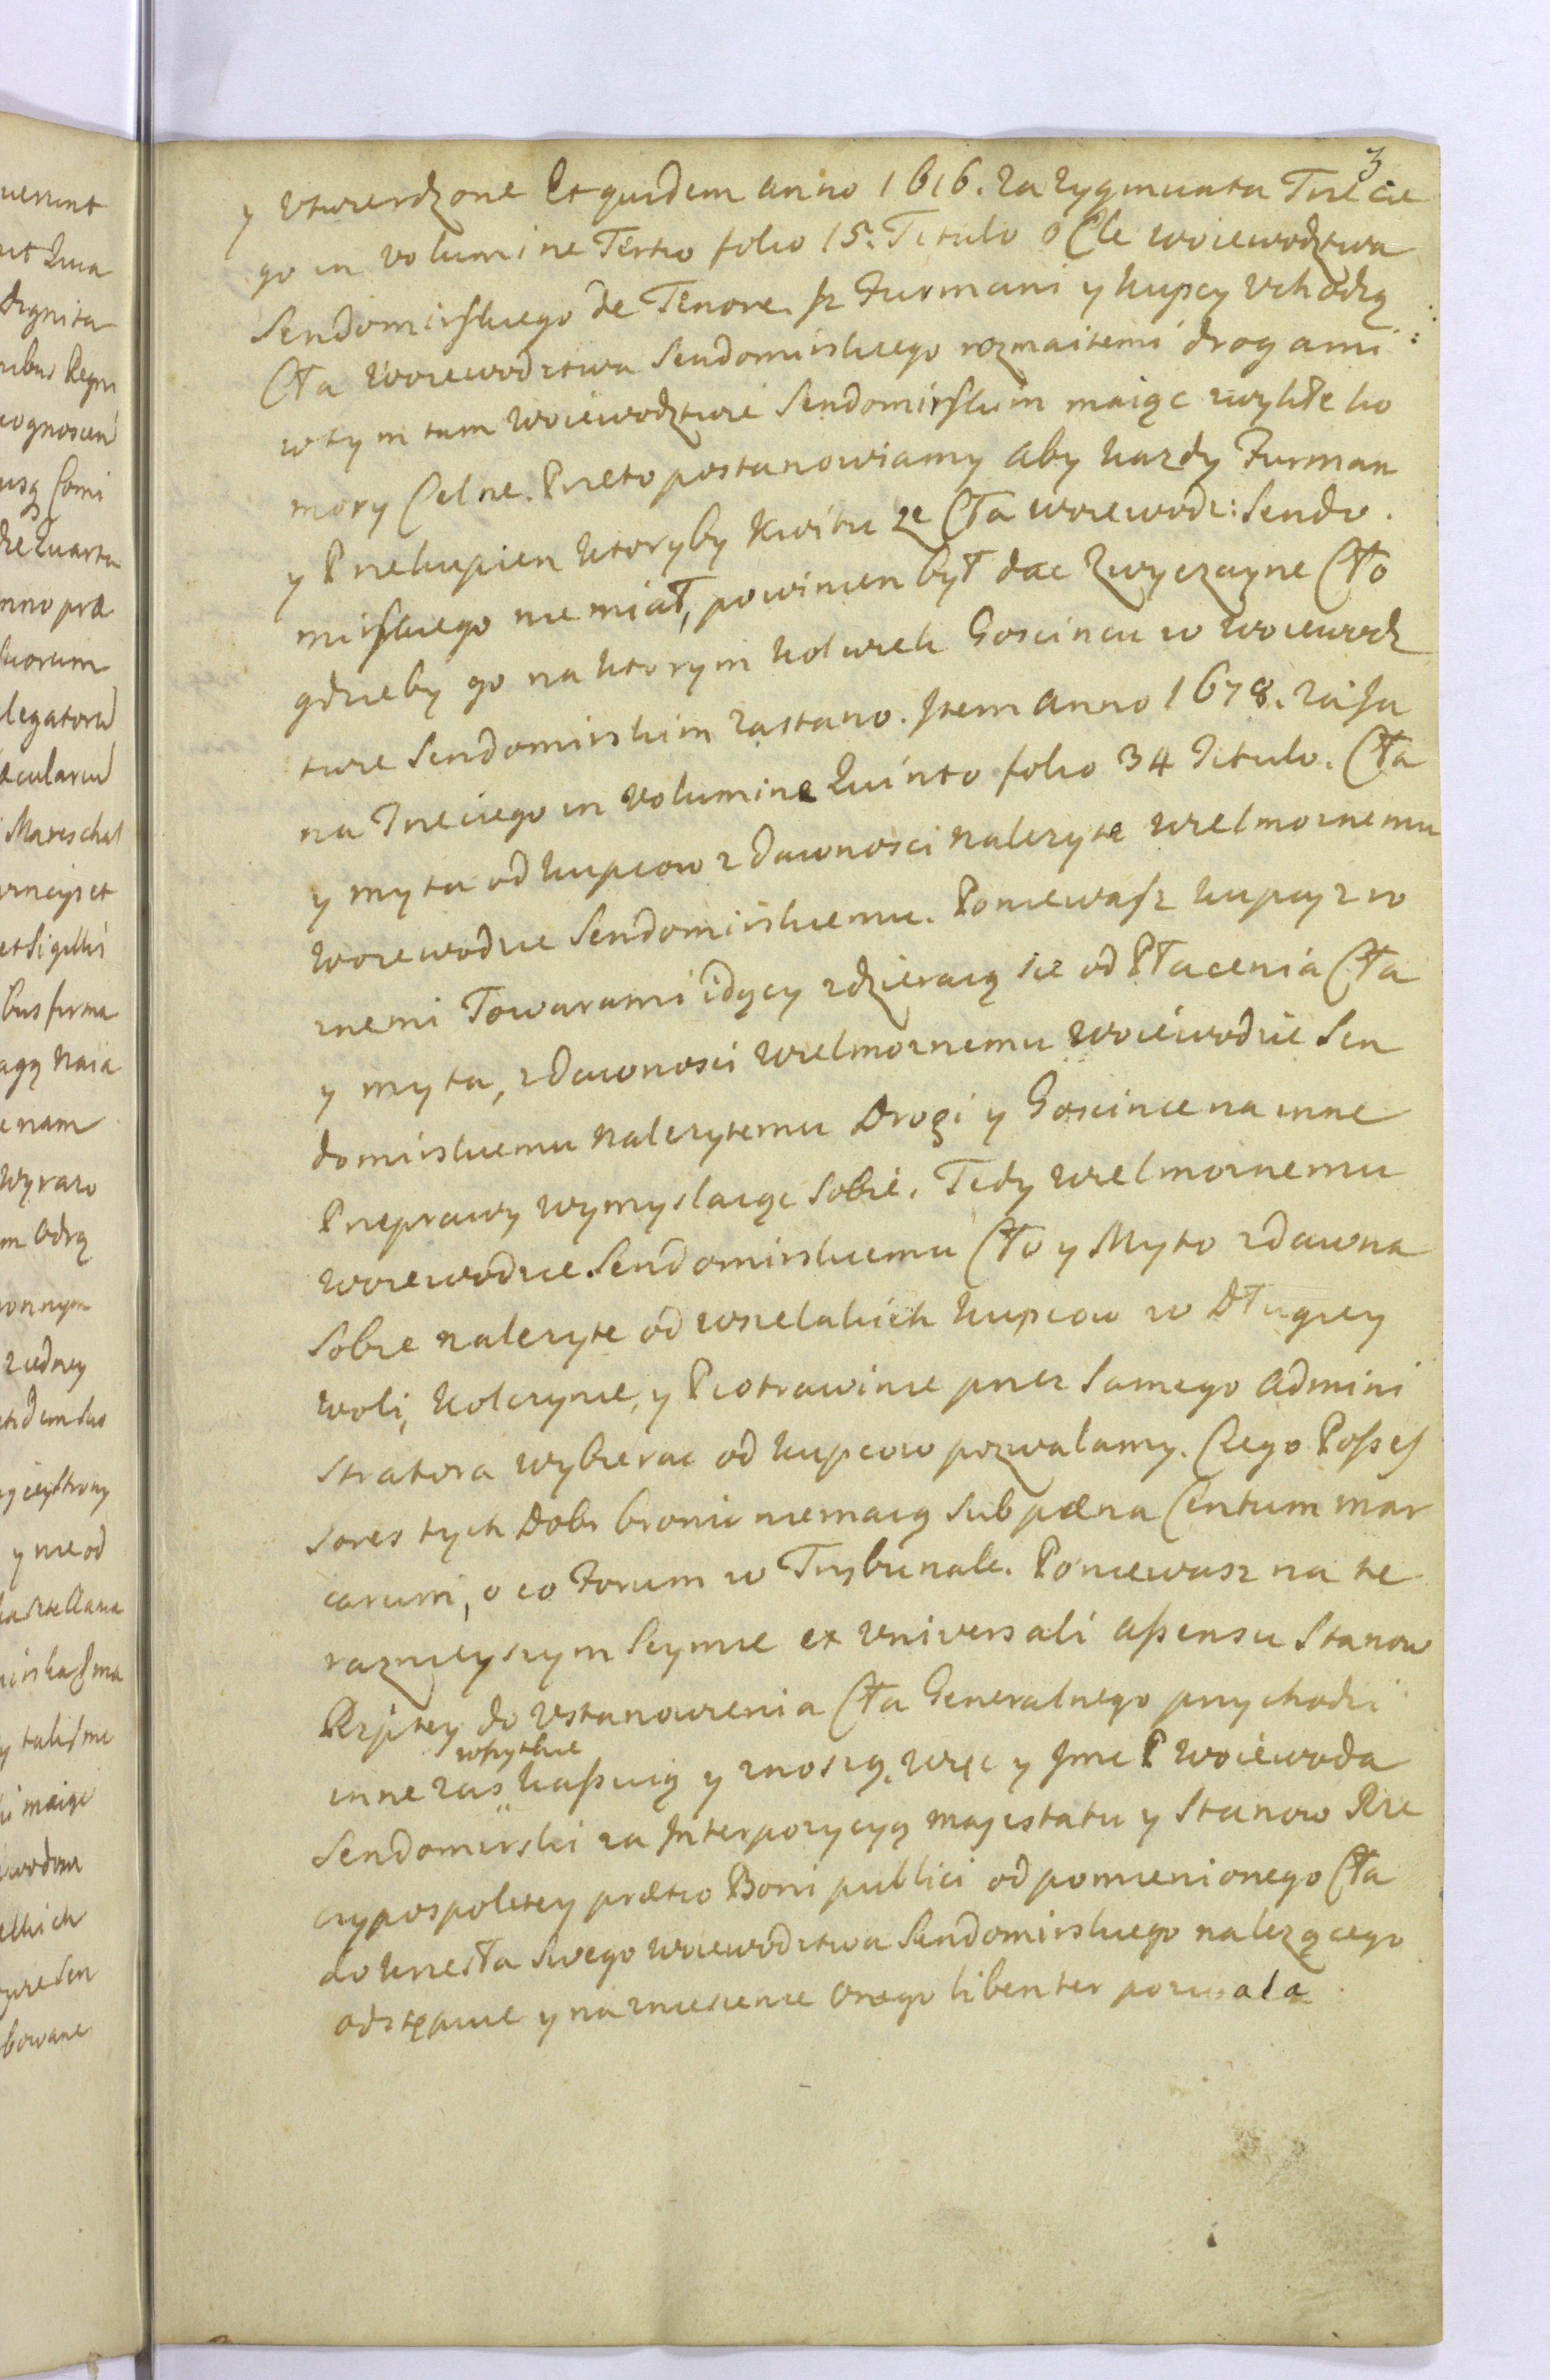 3
y utwierdzone Et quidem anno 1616. za zygmunta Trzecie
go in volumine Tertio folio 15. Titulo o Cle woiewodztwa
Sendomirskiego de Tenore. Jz Furmani y kupcy uchodzą
Cła woiewodztwa Sendomirskiego rozmaitemi drogami
w tym tam woiewodztwie Sendomirskim maiąc zwykłe ko
mory Celne. Przeto postanowiamy aby kazdy Furman
y Przekupien ktoryby kwitu ze Cła woiewodz: Sendo.
mirskiego nie miał, powinien był dac zwyczayne Cło
gdzieby go na ktorym kolwiek Goscincu w woiewodz
twie Sendomirskim zastano. Jtem anno 1678. za Ja
na Trzeciego in volumine Quinto folio 34 Titulo. Cła
y myta od kupcow z dawnosci nalezyte wielmoznemu
woiewodzie Sendomirskiemu. Poniewasz kupcy z ro
znemi Towarami idący zdzieraią sie od Płacenia Cła
y myta, z dawnosci wielmoznemu woiewodzie Sen
domirskiemu nalezytemu Drogi y Goscince na inne
Przeprawy wymyslaiąc sobie. Tedy wielmoznemu
woiewodzie Sendomirskiemu Cło y Myto zdawna
sobie nalezyte od wszelakich kupcow w Długiey
woli, kolczynie, y Piotrawinie przez samego admini
stratora wybierac od kupcow pozwalamy. Czego Posses
sores tych Dobr bronic niemaią sub pæna Centum mar
carum, o co Forum w Trybunale. Poniewasz na te
raznieyszym Seymie ex universali assensu Stanow
Rzptey do ustanowienia Cła Generalnego przychodzi
wszytkie
inne zas kassuią y znoszą, więc y Jmc P woiewoda
Sendomirski za Interpozycyą majestatu y Stanow Rze
czypospolitey prætio Boni publici od pomienionego Cła
do krzesła swego woiewodztwa Sendomirskiego nalezącego
odstępuie y na zniesienie onego libenter pozwala